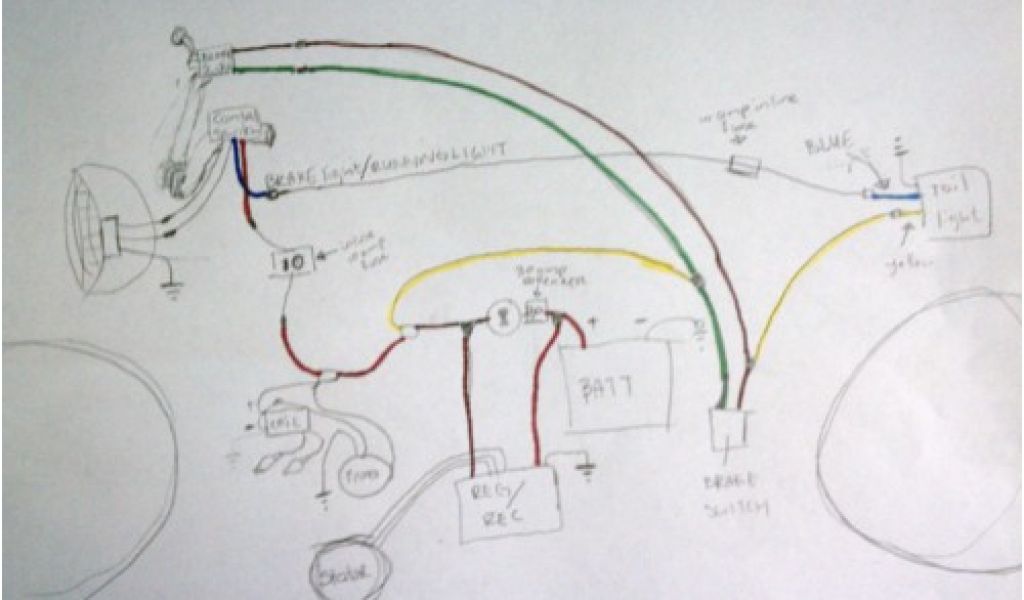 BRAKE light/RUNNING LIGHT
inline
fuse
BLUE
Tail
light
yellow
10
inline
fuse
+ -
BATT
+
-
COIL
REG/
REC
BRAKE
SWITCH
Stator